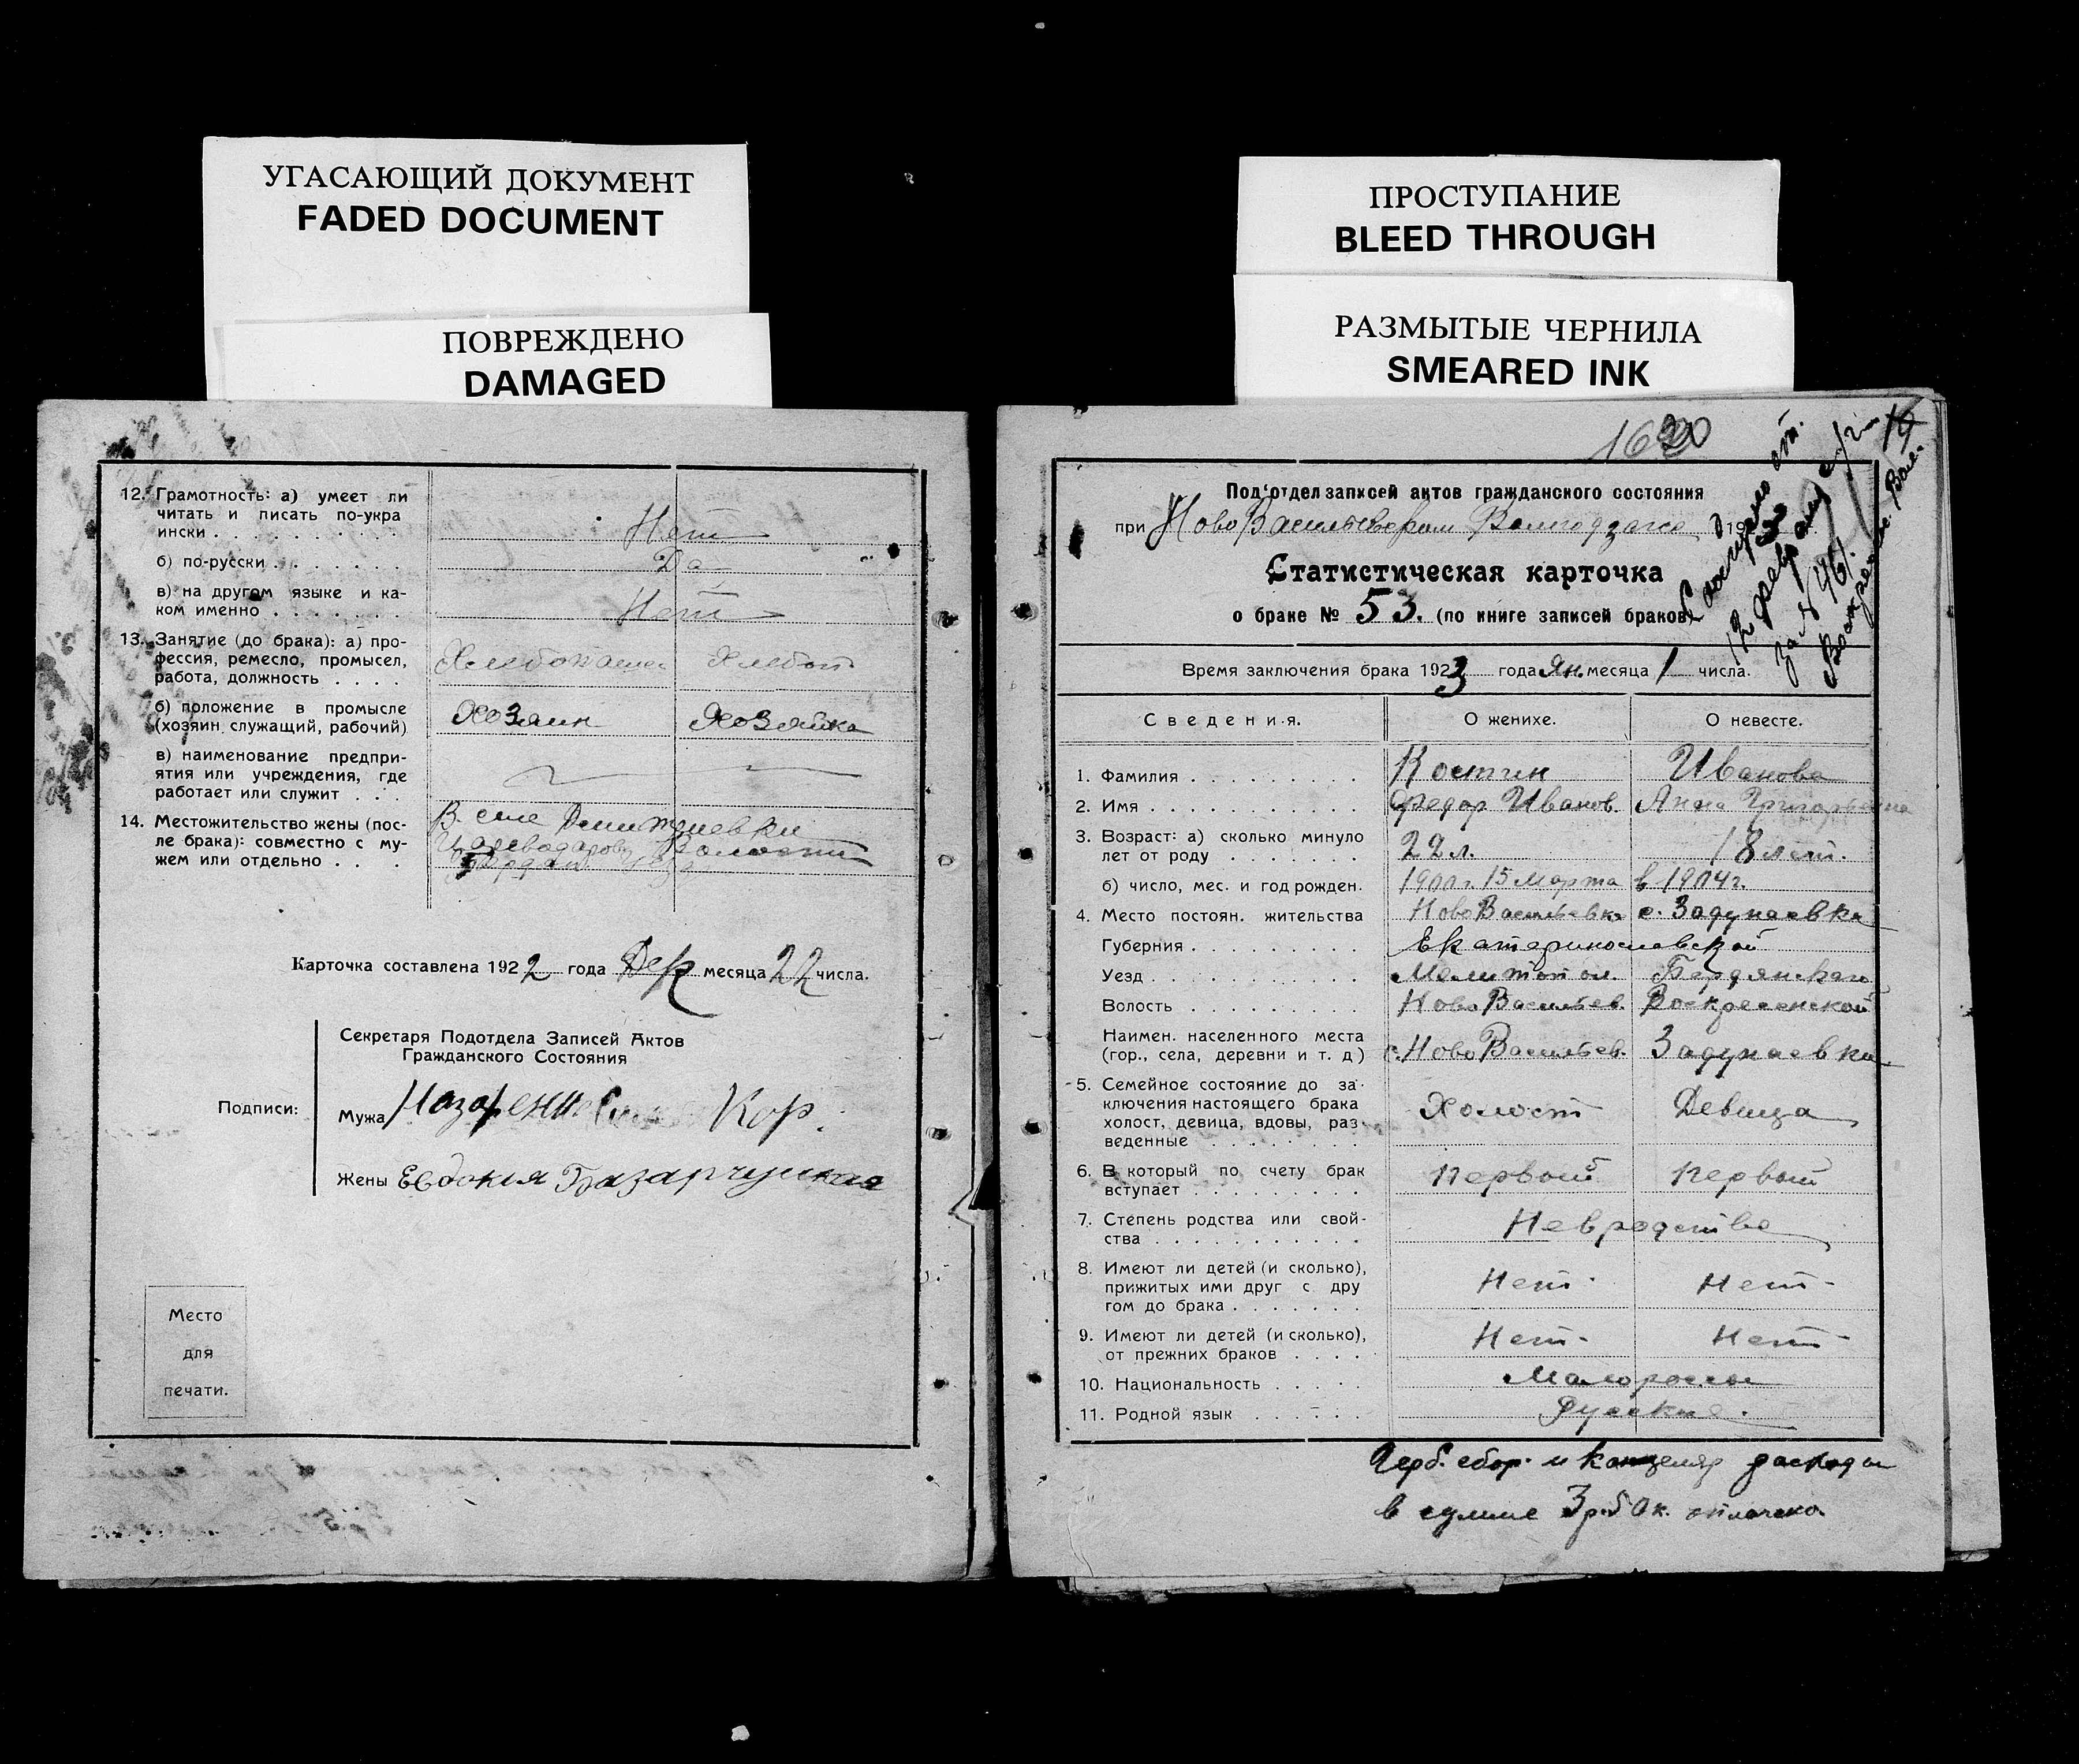 УГАСАЮЩИЙ ДОКУМЕНТ
FADED DOCUMENT
ПОВРЕЖДЕНО
DAMAGED
12. Грамотность: а) умеет ли
читать и писать по-укра
ински . . . . . . . . . . Нет
б) по-русски . . . . . . . Да
в) на другом языке и ка-
ком именно . . . . . . . Нет
13. Занятие (до брака): а) про-
фессия, ремесло, промысел,
работа, должность . . . . Хлебопашец Хлебоп
б) положение в промысле
(хозяин служащий, рабочий) Хозяин Хозяйка
в) наименование предпри-
ятия или учреждения, где
работает или служит . . .
14. Местожительство жены (пос-
ле брака): совместно с му-
жем или отдельно . . . .
В селе
волости
Карточка составлена 1922 года Дек месяца 22 числа.
Секретаря Подотдела Записей Актов
Гражданского Состояния
Подписи:
Мужа Кор.
Жены Евдокия
Место
для
печати.
ПРОСТУПАНИЕ
BLEED THROUGH
РАЗМЫТЫЕ ЧЕРНИЛА
SMEARED INK
Под'отдел записей актов гражданского состояния
при 19
Статистическая карточка
о браке № 53. (по книге записей браков)
Время заключения брака 1923 года Ян. месяца 1 числа.
Сведения. О женихе. О невесте.
1. Фамилия . . . . . . . . . Костин Иванова
2. Имя . . . . . . . . . . . Федор Иванов. Анна Григорьевна
3. Возраст: а) сколько минуло
лет от роду . . . . . . . 22 л. 18 лет.
б) число, мес. и год рожден. 1900 г. 15 Марта в 1904 г.
4. Место постоян. жительства Ново Васильевка с. Задунаевка
Губерния . . . . . . . . . Екатеринославской
Уезд . . . . . . . . . . . Мелитопол. Бердянского
Волость . . . . . . . . . Ново Васильев. Воскресенской
Наимен. населенного места
(гор., села, деревни и т. д) с. Ново Васильев. Задунаевка
5. Семейное состояние до за-
ключения настоящего брака
холост, девица, вдовы, раз-
веденные . . . . . . . . Холост Девица
6. В который по счету брак
вступает . . . . . . . . . первый первый
7. Степень родства или свой-
ства . . . . . . . . . . . Не в родстве
8. Имеют ли детей (и сколько),
прижитых ими друг с дру
гом до брака . . . . . . . Нет. Нет.
9. Имеют ли детей (и сколько),
от прежних браков . . . . Нет. Нет
10. Национальность . . . . . Малороссы
11. Родной язык . . . . . . Русский.
Герб. сбор. и канцеляр расходы
в сумме 3 р. 50 к. оплачено